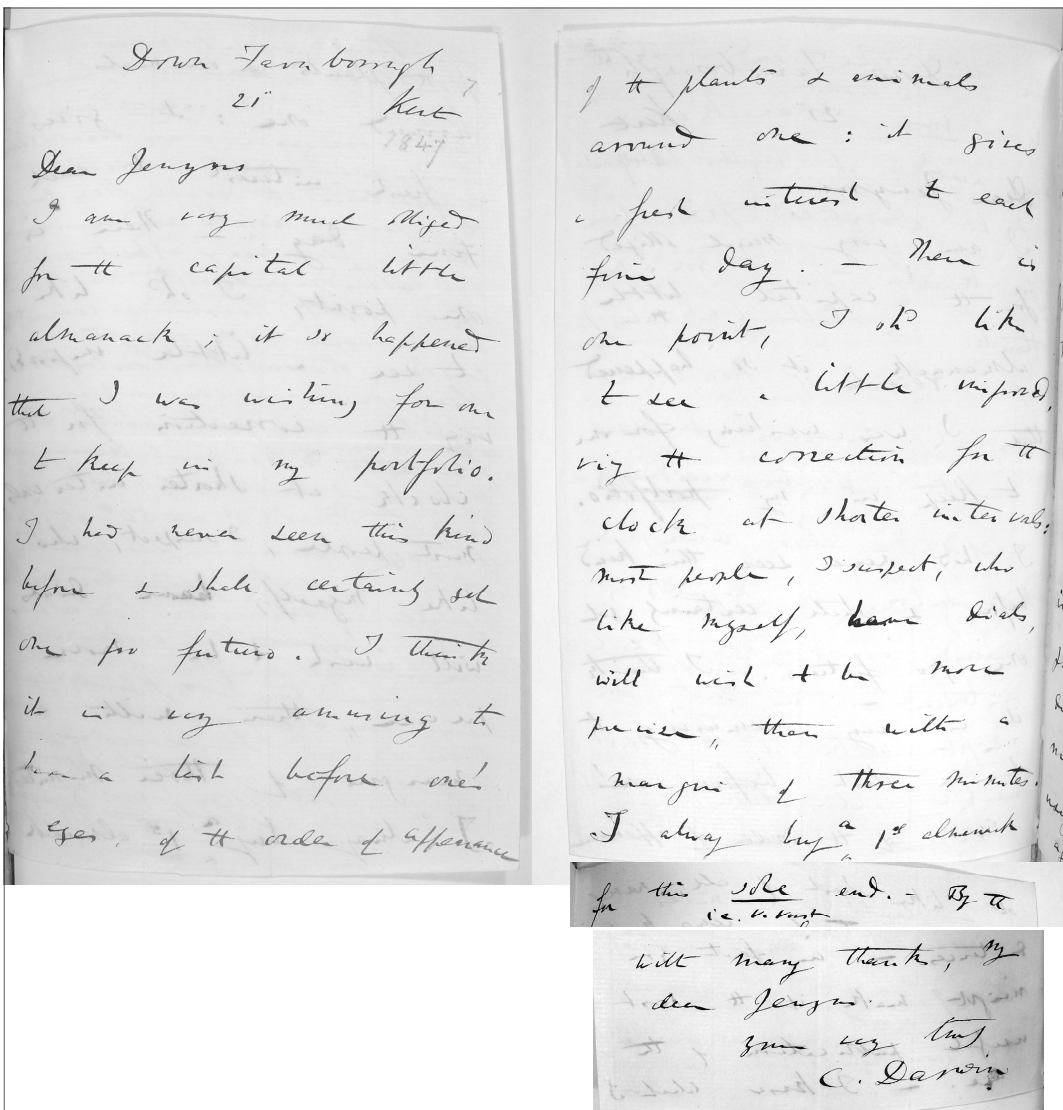 Down Farnborough
25 Kent
1847
Dear Jenyns
I am very much obliged
for tt capital little
almanack ; it so happened
that I was wishing for one
t keep in my portfolio.
I had never seen this kind
before & shall certainly get
one for future. I think
it is very amusing to
have a list before one's
eyes, of tt order of appearance
of tt plants & animals
around one : it gives
a fresh interest t each
fine day. — There is
one point, I shd like
t see a little improved,
viz tt correction for tt
clock at shorter intervals:
most people, I suspect, who
like myself, have dials,
will wish t be more
precise, than with a
margin of three minutes.
I always buy a 1s almanack
for this sole end. — By tt
i.e.
With many thanks, my
dear Jenyns.
yours very truly
C. Darwin